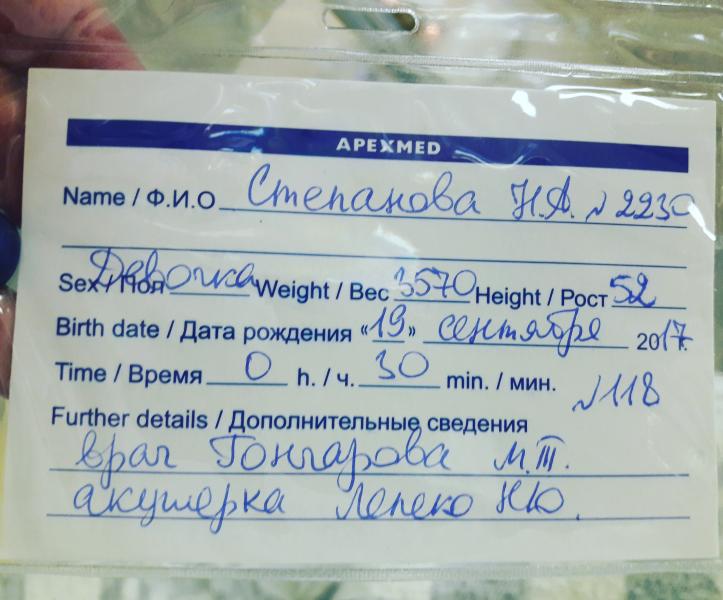 APEXMED
Name / Ф.И.О Степанова Н.А. №2230
Sex / Пол Девочка Weight / Вес 3570 Height / Рост 52
Birth date / Дата рождения «19» сентября 2017г.
Time / Время 0 h. / ч. 30 min. / мин. №118
Further details / Дополнительные сведения
врач Гончарова М.Т.
акушерка Лепеко Н.Ю.